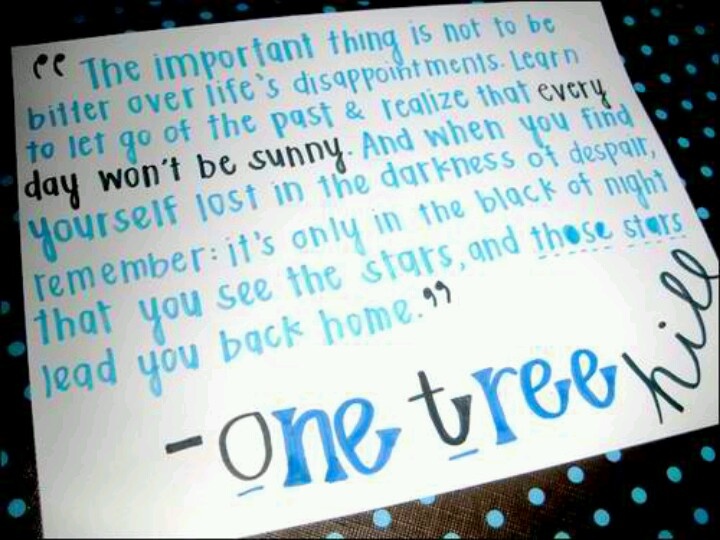 “The important thing is not to be
bitter over life's disappointments. Learn
to let go of the past & realize that every
day won't be sunny. And when you find
yourself lost in the darkness of despair,
remember: it's only in the black of night
that you see the stars, and those stars
lead you back home.”
- One tree hill